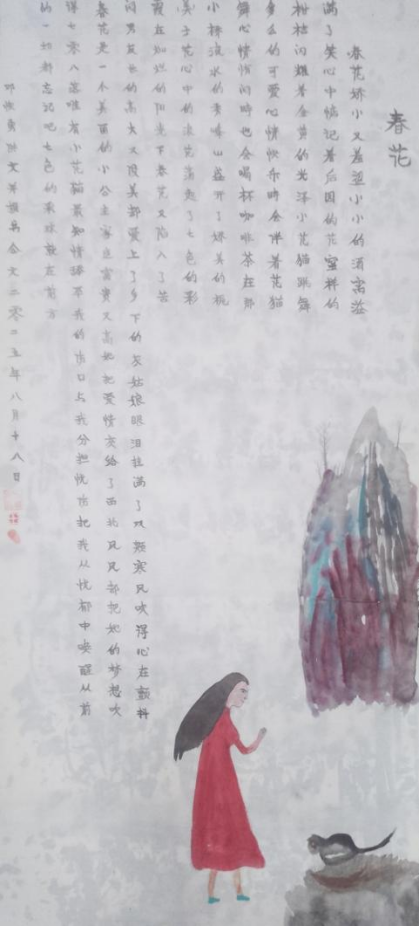 春花
春花娇小又羞涩小小的酒窝溢
满了笑心中惦记着后园的花蜜样的
柑桔闪耀着金黄的光泽小花猫跳舞
多么的可爱心情快乐时会伴着花猫
舞心情忧闷时也会喝杯咖啡茶在那
小桥流水的青峰山盛开了娇美的桃
花心中的浪花荡起了七色的彩
霞在如炽的阳光下春花又陷入了苦
闷男友的高大又俊美都爱上了乡下的灰姑娘眼泪挂满了双颊寒风吹得心在颤抖
春花是一个美丽的小公主富贵又高她把爱情交给了西北风风却把她的梦想吹
得七零八落唯有小花猫最知情舔我的伤口与我分担忧伤把我从忧郁中唤醒从前
的一切都忘记吧七色的彩球就在前方
二零二五年八月十八日